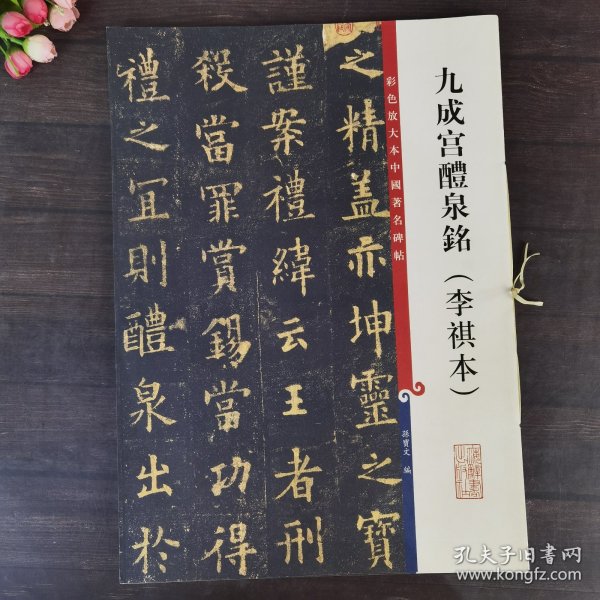 之精盖亦坤靈之寶
謹案禮緯云王者刑
殺當罪賞錫當功得
禮之宜則醴泉出於
彩色放大本中國著名碑帖
九成宫醴泉銘（李祺本）
孫寶文 編
孔夫子旧書网
www.kongfz.com